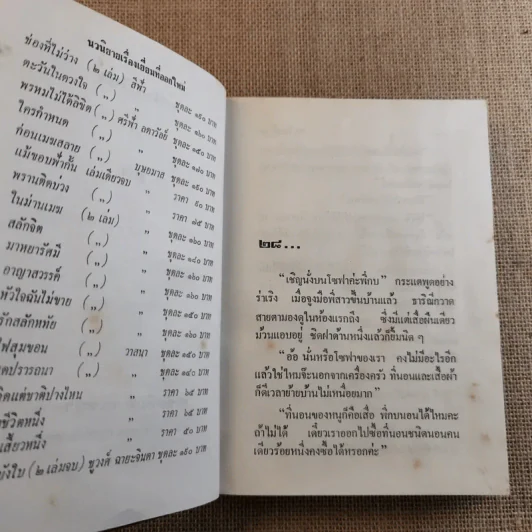 นวนิยายเรื่องเยี่ยมที่ออกใหม่
ช่องที่ไม่ว่าง (๒ เล่ม) สีฟ้า ชุดละ ๑๕๐ บาท
ตะวันในดวงใจ (,,) ,, ชุดละ ๑๒๐ บาท
พรหมไม่ได้ลิขิต (,,) ศรีฟ้า ลดาวัลย์ ชุดละ ๑๕๐ บาท
ใครกำหนด (,,) ,, ชุดละ ๑๘๐ บาท
ก่อนเมฆสลาย (,,) บุษยมาส ชุดละ ๑๒๐ บาท
แม้ขอบฟ้ากั้น เล่มเดียวจบ ,, ราคา ๕๐ บาท
พรานติดบ่วง (,,) ,, ราคา ๖๕ บาท
ในม่านเมฆ (๒ เล่ม) ,, ชุดละ ๑๒๐ บาท
สลักจิต (,,) ,, ชุดละ ๑๔๐ บาท
มาทยารัศมี (,,) ,, ชุดละ ๑๒๐ บาท
อาญาสวรรค์ (,,) ,, ชุดละ ๑๒๐ บาท
หัวใจฉันไม่ขาย (,,) ,, ชุดละ ๑๕๐ บาท
รักสลักหทัย (,,) ,, ชุดละ ๑๒๐ บาท
ไฟสุมขอน (,,) วาสนา ชุดละ ๑๕๐ บาท
(,,) ,, ชุดละ ๑๔๐ บาท
,, ราคา ๖๕ บาท
ชีวิตหนึ่ง ,, ราคา ๖๕ บาท
เสี้ยวหนึ่ง ,, ราคา ๕๐ บาท
บังใบ (๒ เล่มจบ) ชูวงศ์ ฉายะจินดา ชุดละ ๑๕๐ บาท
๒๘...
“เชิญนั่งบนโซฟาค่ะพี่กบ” กระแตพูดอย่าง
ร่าเริง เมื่อจูงมือพี่สาวขึ้นบ้านแล้ว ธาริณีกวาด
สายตามองดูในห้องแรกถึง ซึ่งมีแต่เสื่อผืนเดียว
ม้วนแอบอยู่ ชิดฝาด้านหนึ่งแล้วก็ยิ้มนิด ๆ
“อ้อ นั่นหรือโซฟาของเรา คงไม่มีอะไรอีก
แล้วใช่ไหมจ๊ะนอกจากเครื่องครัว ที่นอนและเสื้อผ้า
ก็ดีเวลาย้ายบ้านไม่เหนื่อยมาก”
“ที่นอนของหนูก็คือเสื่อ พี่กบนอนได้ไหมคะ
ถ้าไม่ได้ เดี๋ยวเราออกไปซื้อที่นอนชนิดนอนคน
เดียวร้อยหนึ่งคงซื้อได้หรอกค่ะ”